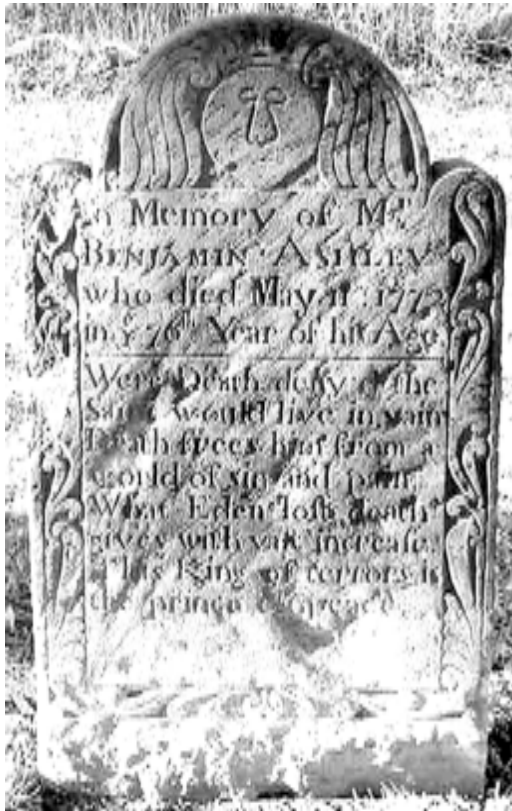 In Memory of Mr.
BENJAMIN ASHLEY
who died May 11th 1772
in ye 76th Year of his Age
Were Death deny'd the
Saint would live in vain
Death frees him from a
world of sin and pain
What Eden lost death
gives with vast increase
This King of terrors is
the prince of peace